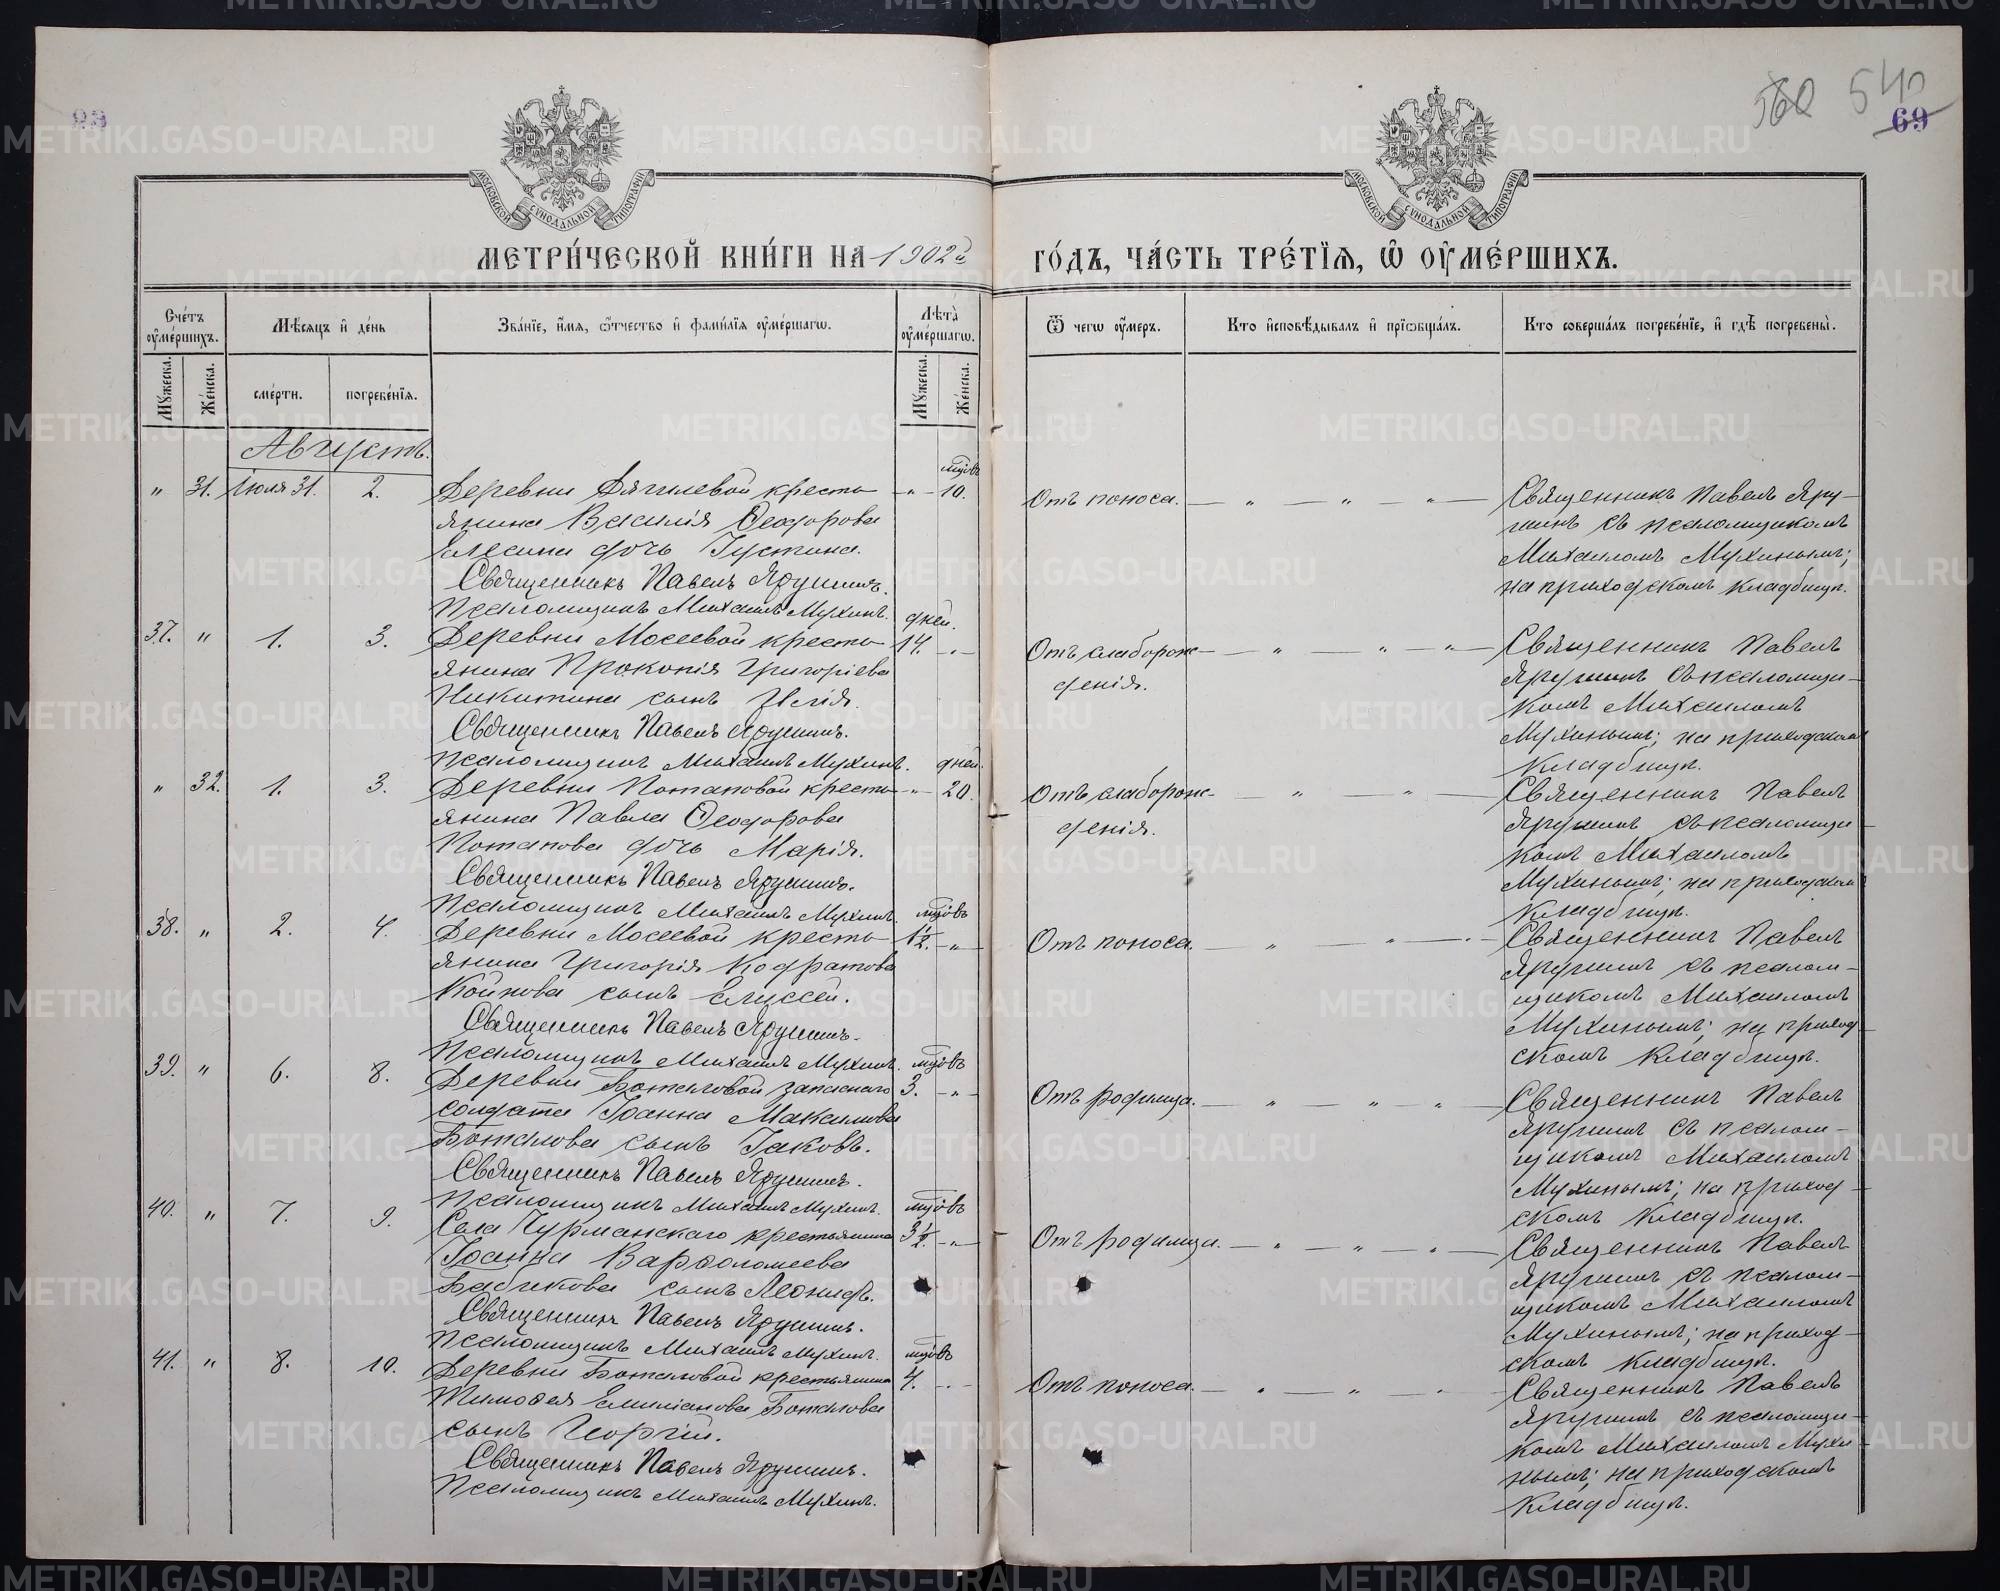 560 540
69
МОСКОВСКОЙ СѴНОДАЛЬНОЙ ТИПОГРАФІИ
МОСКОВСКОЙ СѴНОДАЛЬНОЙ ТИПОГРАФІИ
МЕТРИ́ЧЕСКОЙ КНИ́ГИ НА 1902й ГО́ДЪ, ЧА́СТЬ ТРЕ́ТІѦ, Ѡ ОУМЕ́РШИХЪ.
Сче́тъ оумершихъ.
Мѣсяцъ и де́нь
Зва́нїе, и҆́мѧ, ѿчество и фами́лїѧ оумершагѡ.
Лѣта̀ оумершагѡ.
Ѿ чегѡ оумеръ.
Кто исповѣдывалъ и прїѡбщалъ.
Кто совершалъ погребе́нїе, и гдѣ погребены̀.
Мꙋжеска.
Же́нска.
сме́рти.
погребе́нїѧ.
Мꙋжеска.
Же́нска.
Августъ.
" 31. Іюля 31. 2. Деревни Дягилевой кресть- " мцѣвъ 10.
янина Василія Ѳеодорова
Елесина дочь Іустина.
Священникъ Павелъ Ярушинъ.
Псаломщикъ Михаилъ Мухинъ.
Отъ поноса. — " — " —
Священникъ Павелъ Яру-
шинъ съ псаломщикомъ
Михаиломъ Мухинымъ;
на приходскомъ кладбищѣ.
37. " 1. 3. Деревни Мосеевой кресть- дней. 14. "
янина Прокопія Григоріева
Никитина сынъ Илія.
Священникъ Павелъ Ярушинъ.
Псаломщикъ Михаилъ Мухинъ.
Отъ слаборож- — " — " — " —
денія.
Священникъ Павелъ
Ярушинъ съ псаломщи-
комъ Михаиломъ
Мухинымъ; на приходскомъ
кладбищѣ.
" 32. 1. 3. Деревни Потаповой кресть- " дней. 20.
янина Павла Ѳеодорова
Потапова дочь Марія.
Священникъ Павелъ Ярушинъ.
Псаломщикъ Михаилъ Мухинъ.
Отъ слаборож- — " — " —
денія.
Священникъ Павелъ
Ярушинъ съ псаломщи-
комъ Михаиломъ
Мухинымъ; на приходском
кладбищѣ.
38. " 2. 4. Деревни Мосеевой кресть- мцѣвъ 1½. "
янина Григорія Кодратова
Койнова сынъ Елиссей.
Священникъ Павелъ Ярушинъ.
Псаломщикъ Михаилъ Мухинъ.
Отъ поноса. — " — " — " —
Священникъ Павелъ
Ярушинъ съ псалом-
щикомъ Михаиломъ
Мухинымъ; на приход-
скомъ кладбищѣ.
39. " 6. 8. Деревни Боталовой запаснаго мцѣвъ 3. "
солдата Іоанна Максимова
Боталова сынъ Іаковъ.
Священникъ Павелъ Ярушинъ.
Псаломщикъ Михаилъ Мухинъ.
Отъ родимца. — " — " — " —
Священникъ Павелъ
Ярушинъ съ псалом-
щикомъ Михаиломъ
Мухинымъ; на приход-
скомъ кладбищѣ.
40. " 7. 9. Села Чурманскаго крестьянина мцѣвъ 3½. "
Іоанна Варѳоломеева
Бабикова сынъ Леонидъ.
Священникъ Павелъ Ярушинъ.
Псаломщикъ Михаилъ Мухинъ.
Отъ родимца. — " — " — " —
Священникъ Павелъ
Ярушинъ съ псалом-
щикомъ Михаиломъ
Мухинымъ; на приход-
скомъ кладбищѣ.
41. " 8. 10. Деревни Боталовой крестьянина мцѣвъ 4. "
Тимоѳея Емиліанова Боталова
сынъ Георгій.
Священникъ Павелъ Ярушинъ.
Псаломщикъ Михаилъ Мухинъ.
Отъ поноса. — " — " — " —
Священникъ Павелъ
Ярушинъ съ псаломщи-
комъ Михаиломъ Мухи-
нымъ; на приходскомъ
кладбищѣ.
METRIKI.GASO-URAL.RU